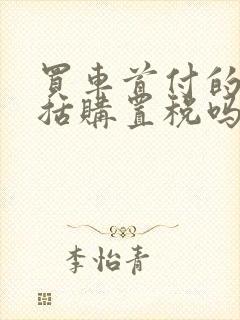 買車首付的
括購置稅嗎
李怡青